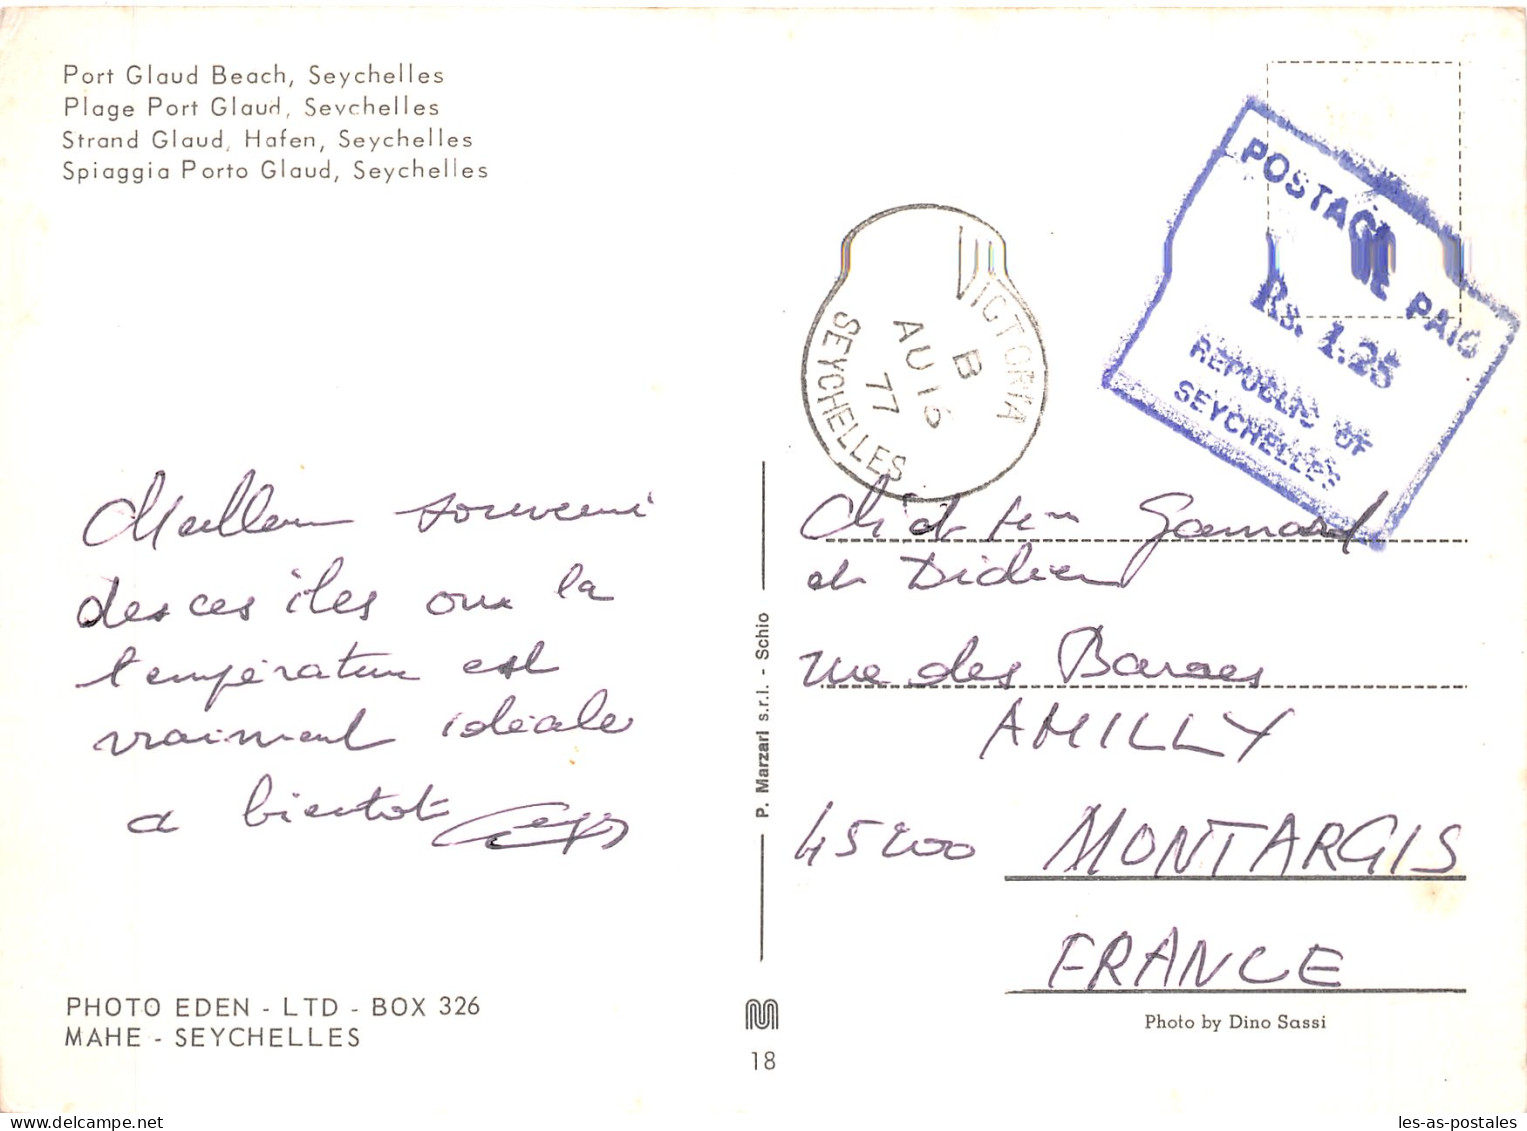 Port Glaud Beach, Seychelles
Plage Port Glaud, Seychelles
Strand Glaud, Hafen, Seychelles
Spiaggia Porto Glaud, Seychelles
VICTORIA
B
AU 16
77
SEYCHELLES
POSTAGE PAID
Rs. 1.25
REPUBLIC OF
SEYCHELLES
Meilleur souvenir
des ces îles ou la
température est
vraiment idéale
a bientot
et Didier
rue des
AMILLY
45200 MONTARGIS
FRANCE
P. Marzari s.r.l. - Schio
PHOTO EDEN - LTD - BOX 326
MAHE - SEYCHELLES
18
Photo by Dino Sassi
delcampe.net
les-as-postales